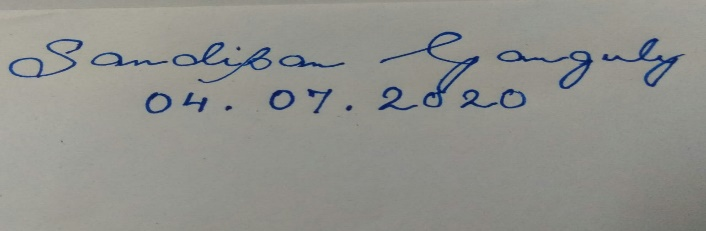 Sandipan Ganguly
04. 07. 2020